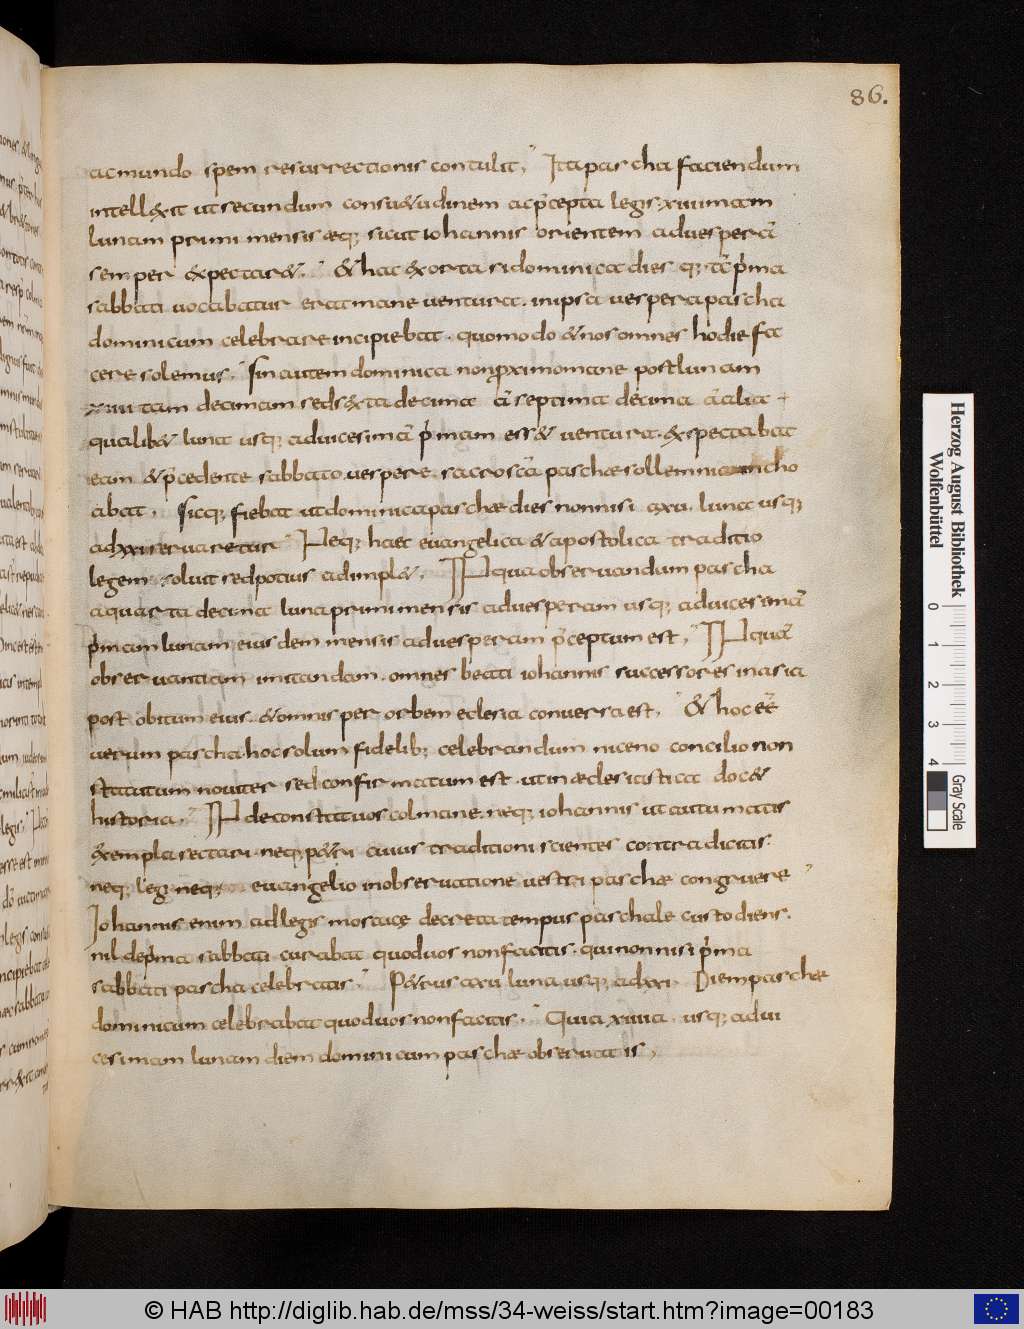 86.
ac mundo spem resurrectionis contulit; Ita pascha faciendum
intellexit ut secundum consuetudinem ac p̄cepta legis xiiiimam
lunam primi mensis æq; sicut iohannis orientem ad uesperā
semper expectaret; & hac exorta si dominica dies q; tc̄ p̄ma
sabbati uocabatur erat mane uentura. in ipsa uespera pascha
dominicum celebrare incipiebat. quomodo & nos omnes hodie fa
cere solemus; Sin autem dominica non ꝓximo mane post lunam
xiiii tam decimam sed sexta decima aū septima decima aū alia
qualib& luna usq; ad uicesimā p̄mam ess& uentura. expectabat
eam & p̄cedente sabbato uespere. sacroscā paschæ sollemnia incho
abat. Sicq; fiebat ut dominica paschæ dies non nisi a xu. luna usq;
ad xxi seruaretur Neq; haec euangelica & apostolica traditio
legem soluit sed potius adimplet; In qua obseruandum pascha
a quarta decima luna primi mensis ad uesperam usq; ad uicesimā
p̄mam lunam eiusdem mensis ad uesperam p̄ceptum est; In quā
obseruantiam imitandam. omnes beati iohannis successores in asia
post obitum eius. & omnis per orbem eclesia conuersa est. & hoc eē
uerum pascha hoc solum fidelib; celebrandum niceno concilio non
statutum nouiter sed confirmatum est. ut in æclesiastica docet
historia; Unde constat uos colmane. neq; iohannis ut autumatis
exempla sectari. neq; petri cuius traditioni scientes contradicitis.
neq; legi neq; euangelio in obseruatione uestri paschæ congruere
Iohannis enim ad legis mosaicę decreta tempus paschale custodiens.
nil de p̄ma sabbati curabat quod uos non facitis. qui non nisi p̄ma
sabbati pascha celebratis; Petrus a xu luna usq; ad xxi Diem paschæ
dominicum celebrabat quod uos non facitis; Quia xiiii a. usq; ad ui
cesimam lunam diem dominicum paschæ obseruatis;
Herzog August Bibliothek
Wolfenbüttel
0 1 2 3 4
Gray Scale
© HAB http://diglib.hab.de/mss/34-weiss/start.htm?image=00183